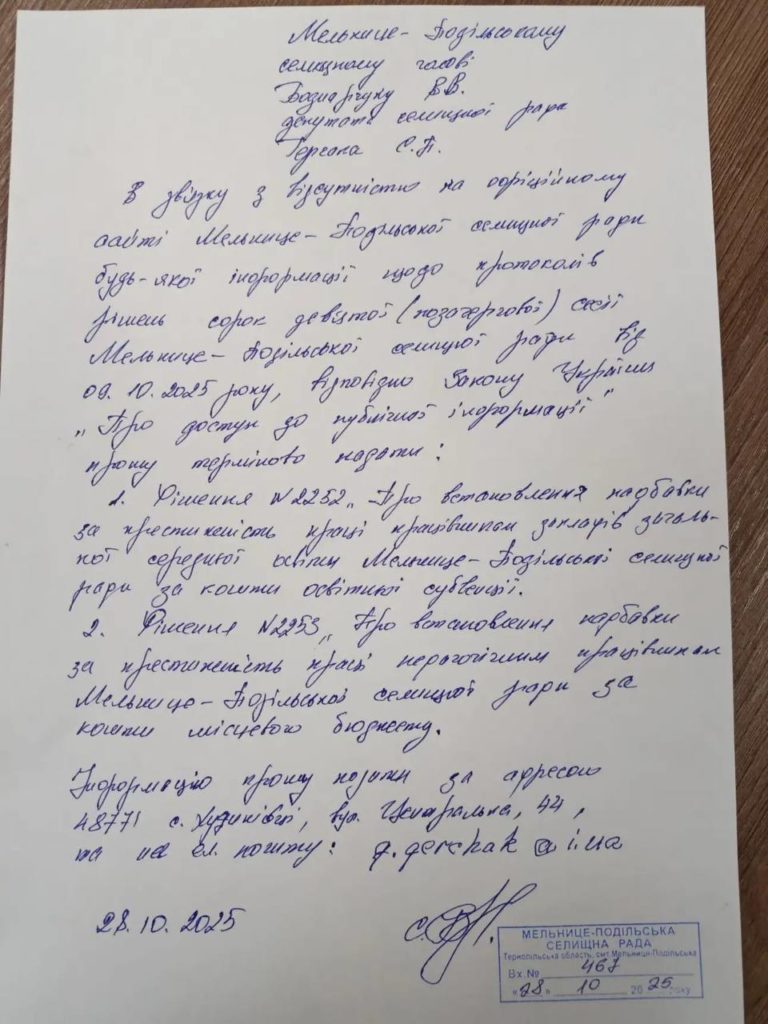 Мельнице-Подільському
селищному голові
Боднарчуку В.В.
депутата селищної ради
С.П.
В звязку з відсутністю на офіційному
сайті Мельнице-Подільської селищної ради
будь-якої інформації щодо протоколів
рішень сорок девятої (позачергової) сесії
Мельнице-Подільської селищної ради від
09.10.2025 року, відповідно Закону України
„Про доступ до публічної інформації"
прошу терміново надати:
1. Рішення №2252 „Про встановлення надбавки
за престижність праці працівникам закладів загаль-
ної середньої освіти Мельнице-Подільської селищної
ради за кошти освітньої субвенції.
2. Рішення №2253 „Про встановлення надбавки
за престижність праці педагогічним працівникам
Мельнице-Подільської селищної ради за
кошти місцевого бюджету.
Інформацію прошу надати за адресою
48771 с. Худиківці, вул. Центральна, 44,
та на ел. пошту: g.gerchak@i.ua
28.10.2025
МЕЛЬНИЦЕ-ПОДІЛЬСЬКА
СЕЛИЩНА РАДА
Тернопільська область, смт.Мельниця-Подільська
Вх.№ 467
«28» 10 2025 року